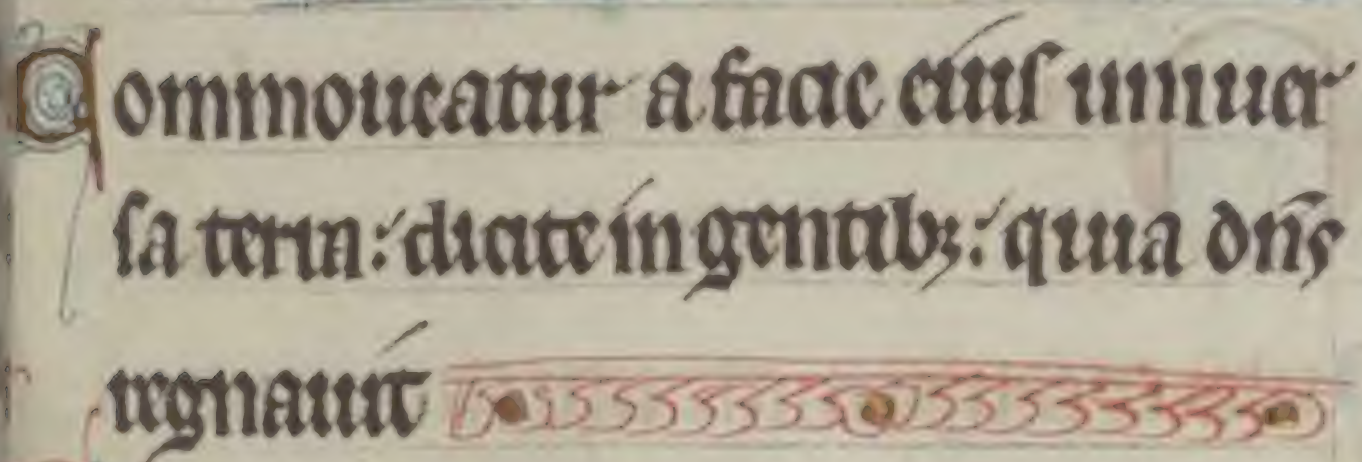 Commoueatur a facie eius uniuer
sa terra: dicite in gentib: quia dn̄s
regnauit